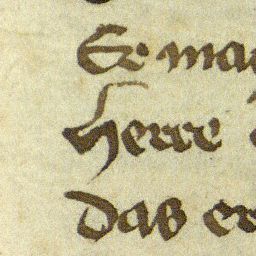 Er mac
herre
das er